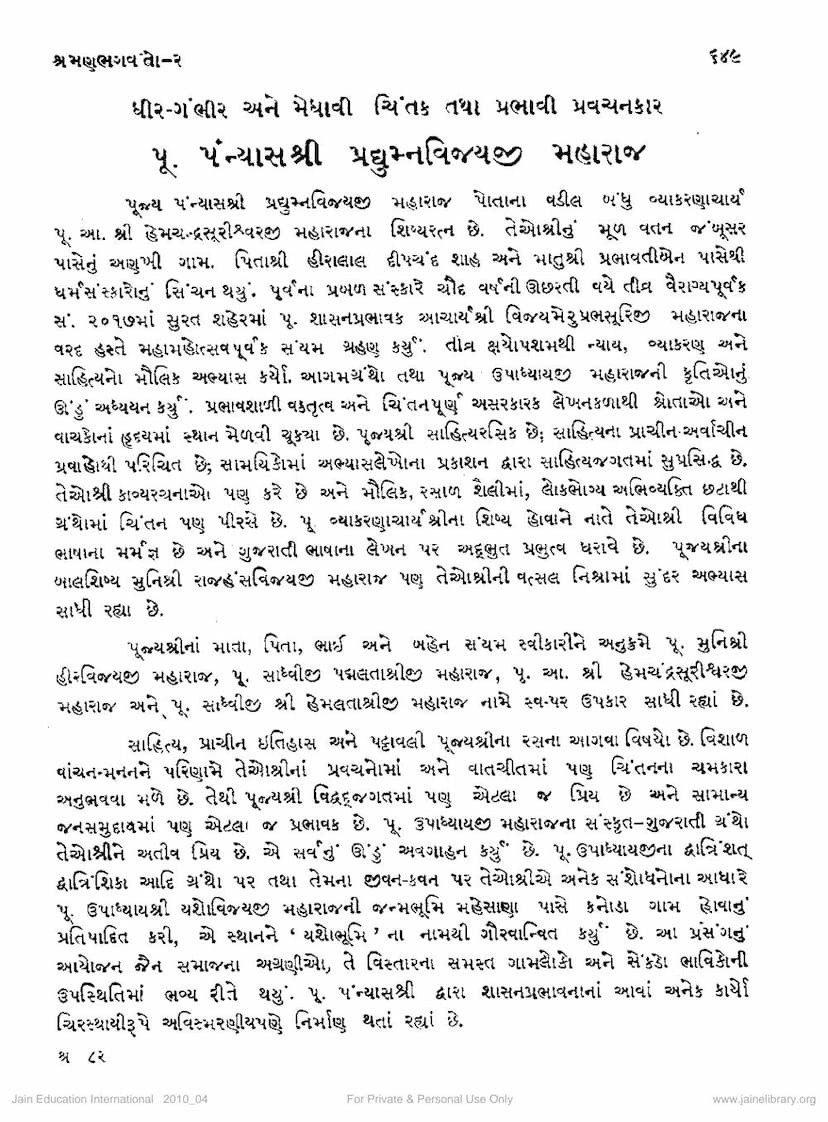 શ્રમણભગવંતો-૨
૬૪૯
ધીર-ગંભીર અને મેધાવી ચિંતક તથા પ્રભાવી પ્રવચનકાર
પૂ. પંન્યાસશ્રી પ્રદ્યુમ્નવિજયજી મહારાજ
પૂજ્ય પંન્યાસશ્રી પ્રદ્યુમ્નવિજયજી મહારાજ પોતાના વડીલ બંધુ વ્યાકરણાચાર્ય
પૂ. આ. શ્રી હેમચન્દ્રસૂરીશ્વરજી મહારાજના શિષ્યરત્ન છે. તેઓશ્રીનું મૂળ વતન જંબૂસર
પાસેનું અણખી ગામ. પિતાશ્રી હીરાલાલ દીપચંદ શાહ અને માતુશ્રી પ્રભાવતીબેન પાસેથી
ધર્મસંસ્કારોનું સિંચન થયું. પૂર્વના પ્રબળ સંસ્કારે ચૌદ વર્ષની ઊછરતી વયે તીવ્ર વૈરાગ્યપૂર્વક
સં. ૨૦૧૭માં સુરત શહેરમાં પૂ. શાસનપ્રભાવક આચાર્યશ્રી વિજયમેરુપ્રભસૂરિજી મહારાજના
વરદ હસ્તે મહામહોત્સવપૂર્વક સંયમ ગ્રહણ કર્યું. તીવ્ર ક્ષયોપશમથી ન્યાય, વ્યાકરણ અને
સાહિત્યનો મૌલિક અભ્યાસ કર્યો. આગમગ્રંથો તથા પૂજ્ય ઉપાધ્યાયજી મહારાજની કૃતિઓનું
ઊંડું અધ્યયન કર્યું. પ્રભાવશાળી વક્તૃત્વ અને ચિંતનપૂર્ણ અસરકારક લેખનકળાથી શ્રોતાઓ અને
વાચકોનાં હૃદયમાં સ્થાન મેળવી ચૂકયા છે. પૂજ્યશ્રી સાહિત્યરસિક છે; સાહિત્યના પ્રાચીન-અર્વાચીન
પ્રવાહોથી પરિચિત છે; સામયિકોમાં અભ્યાસલેખોના પ્રકાશન દ્વારા સાહિત્યજગતમાં સુપ્રસિદ્ધ છે.
તેઓશ્રી કાવ્યરચનાઓ પણ કરે છે અને મૌલિક, રસાળ શૈલીમાં, લોકભોગ્ય અભિવ્યક્તિ છટાથી
ગ્રંથોમાં ચિંતન પણ પીરસે છે. પૂ. વ્યાકરણાચાર્યશ્રીના શિષ્ય હોવાને નાતે તેઓશ્રી વિવિધ
ભાષાના મર્મજ્ઞ છે અને ગુજરાતી ભાષાના લેખન પર અદ્ભુત પ્રભુત્વ ધરાવે છે. પૂજ્યશ્રીના
બાલશિષ્ય મુનિશ્રી રાજહંસવિજયજી મહારાજ પણ તેઓશ્રીની વત્સલ નિશ્રામાં સુંદર અભ્યાસ
સાધી રહ્યા છે.
પૂજ્યશ્રીનાં માતા, પિતા, ભાઈ અને બહેન સંયમ સ્વીકારીને અનુક્રમે પૂ. મુનિશ્રી
હીરવિજયજી મહારાજ, પૂ. સાધ્વીજી પદ્મલતાશ્રીજી મહારાજ, પૂ. આ. શ્રી હેમચંદ્રસૂરીશ્વરજી
મહારાજ અને પૂ. સાધ્વીજી શ્રી હેમલતાશ્રીજી મહારાજ નામે સ્વ-પર ઉપકાર સાધી રહ્યાં છે.
સાહિત્ય, પ્રાચીન ઇતિહાસ અને પટ્ટાવલી પૂજ્યશ્રીના રસના આગવા વિષયો છે. વિશાળ
વાંચન-મનનને પરિણામે તેઓશ્રીનાં પ્રવચનોમાં અને વાતચીતમાં પણ ચિંતનના ચમકારા
અનુભવવા મળે છે. તેથી પૂજ્યશ્રી વિદ્વદ્જગતમાં પણ એટલા જ પ્રિય છે અને સામાન્ય
જનસમુદાયમાં પણ એટલા જ પ્રભાવક છે. પૂ. ઉપાધ્યાયજી મહારાજના સંસ્કૃત-ગુજરાતી ગ્રંથો
તેઓશ્રીને અતીવ પ્રિય છે. એ સર્વનું ઊંડું અવગાહન કર્યું છે. પૂ. ઉપાધ્યાયજીના દ્વાત્રિંશત્
દ્વાત્રિંશિકા આદિ ગ્રંથો પર તથા તેમના જીવન-કવન પર તેઓશ્રીએ અનેક સંશોધનોના આધારે
પૂ. ઉપાધ્યાયશ્રી યશોવિજયજી મહારાજની જન્મભૂમિ મહેસાણા પાસે કનોડા ગામ હોવાનું
પ્રતિપાદિત કરી, એ સ્થાનને ‘ યશોભૂમિ ’ ના નામથી ગૌરવાન્વિત કર્યું છે. આ પ્રસંગનું
આયોજન જૈન સમાજના અગ્રણીઓ, તે વિસ્તારના સમસ્ત ગામલોકો અને સેંકડો ભાવિકોની
ઉપસ્થિતિમાં ભવ્ય રીતે થયું. પૂ. પંન્યાસશ્રી દ્વારા શાસનપ્રભાવનાનાં આવાં અનેક કાર્યો
ચિરસ્થાયીરૂપે અવિસ્મરણીયપણે નિર્માણ થતાં રહ્યાં છે.
શ્ર ૮૨
Jain Education International 2010_04
For Private & Personal Use Only
www.jainelibrary.org